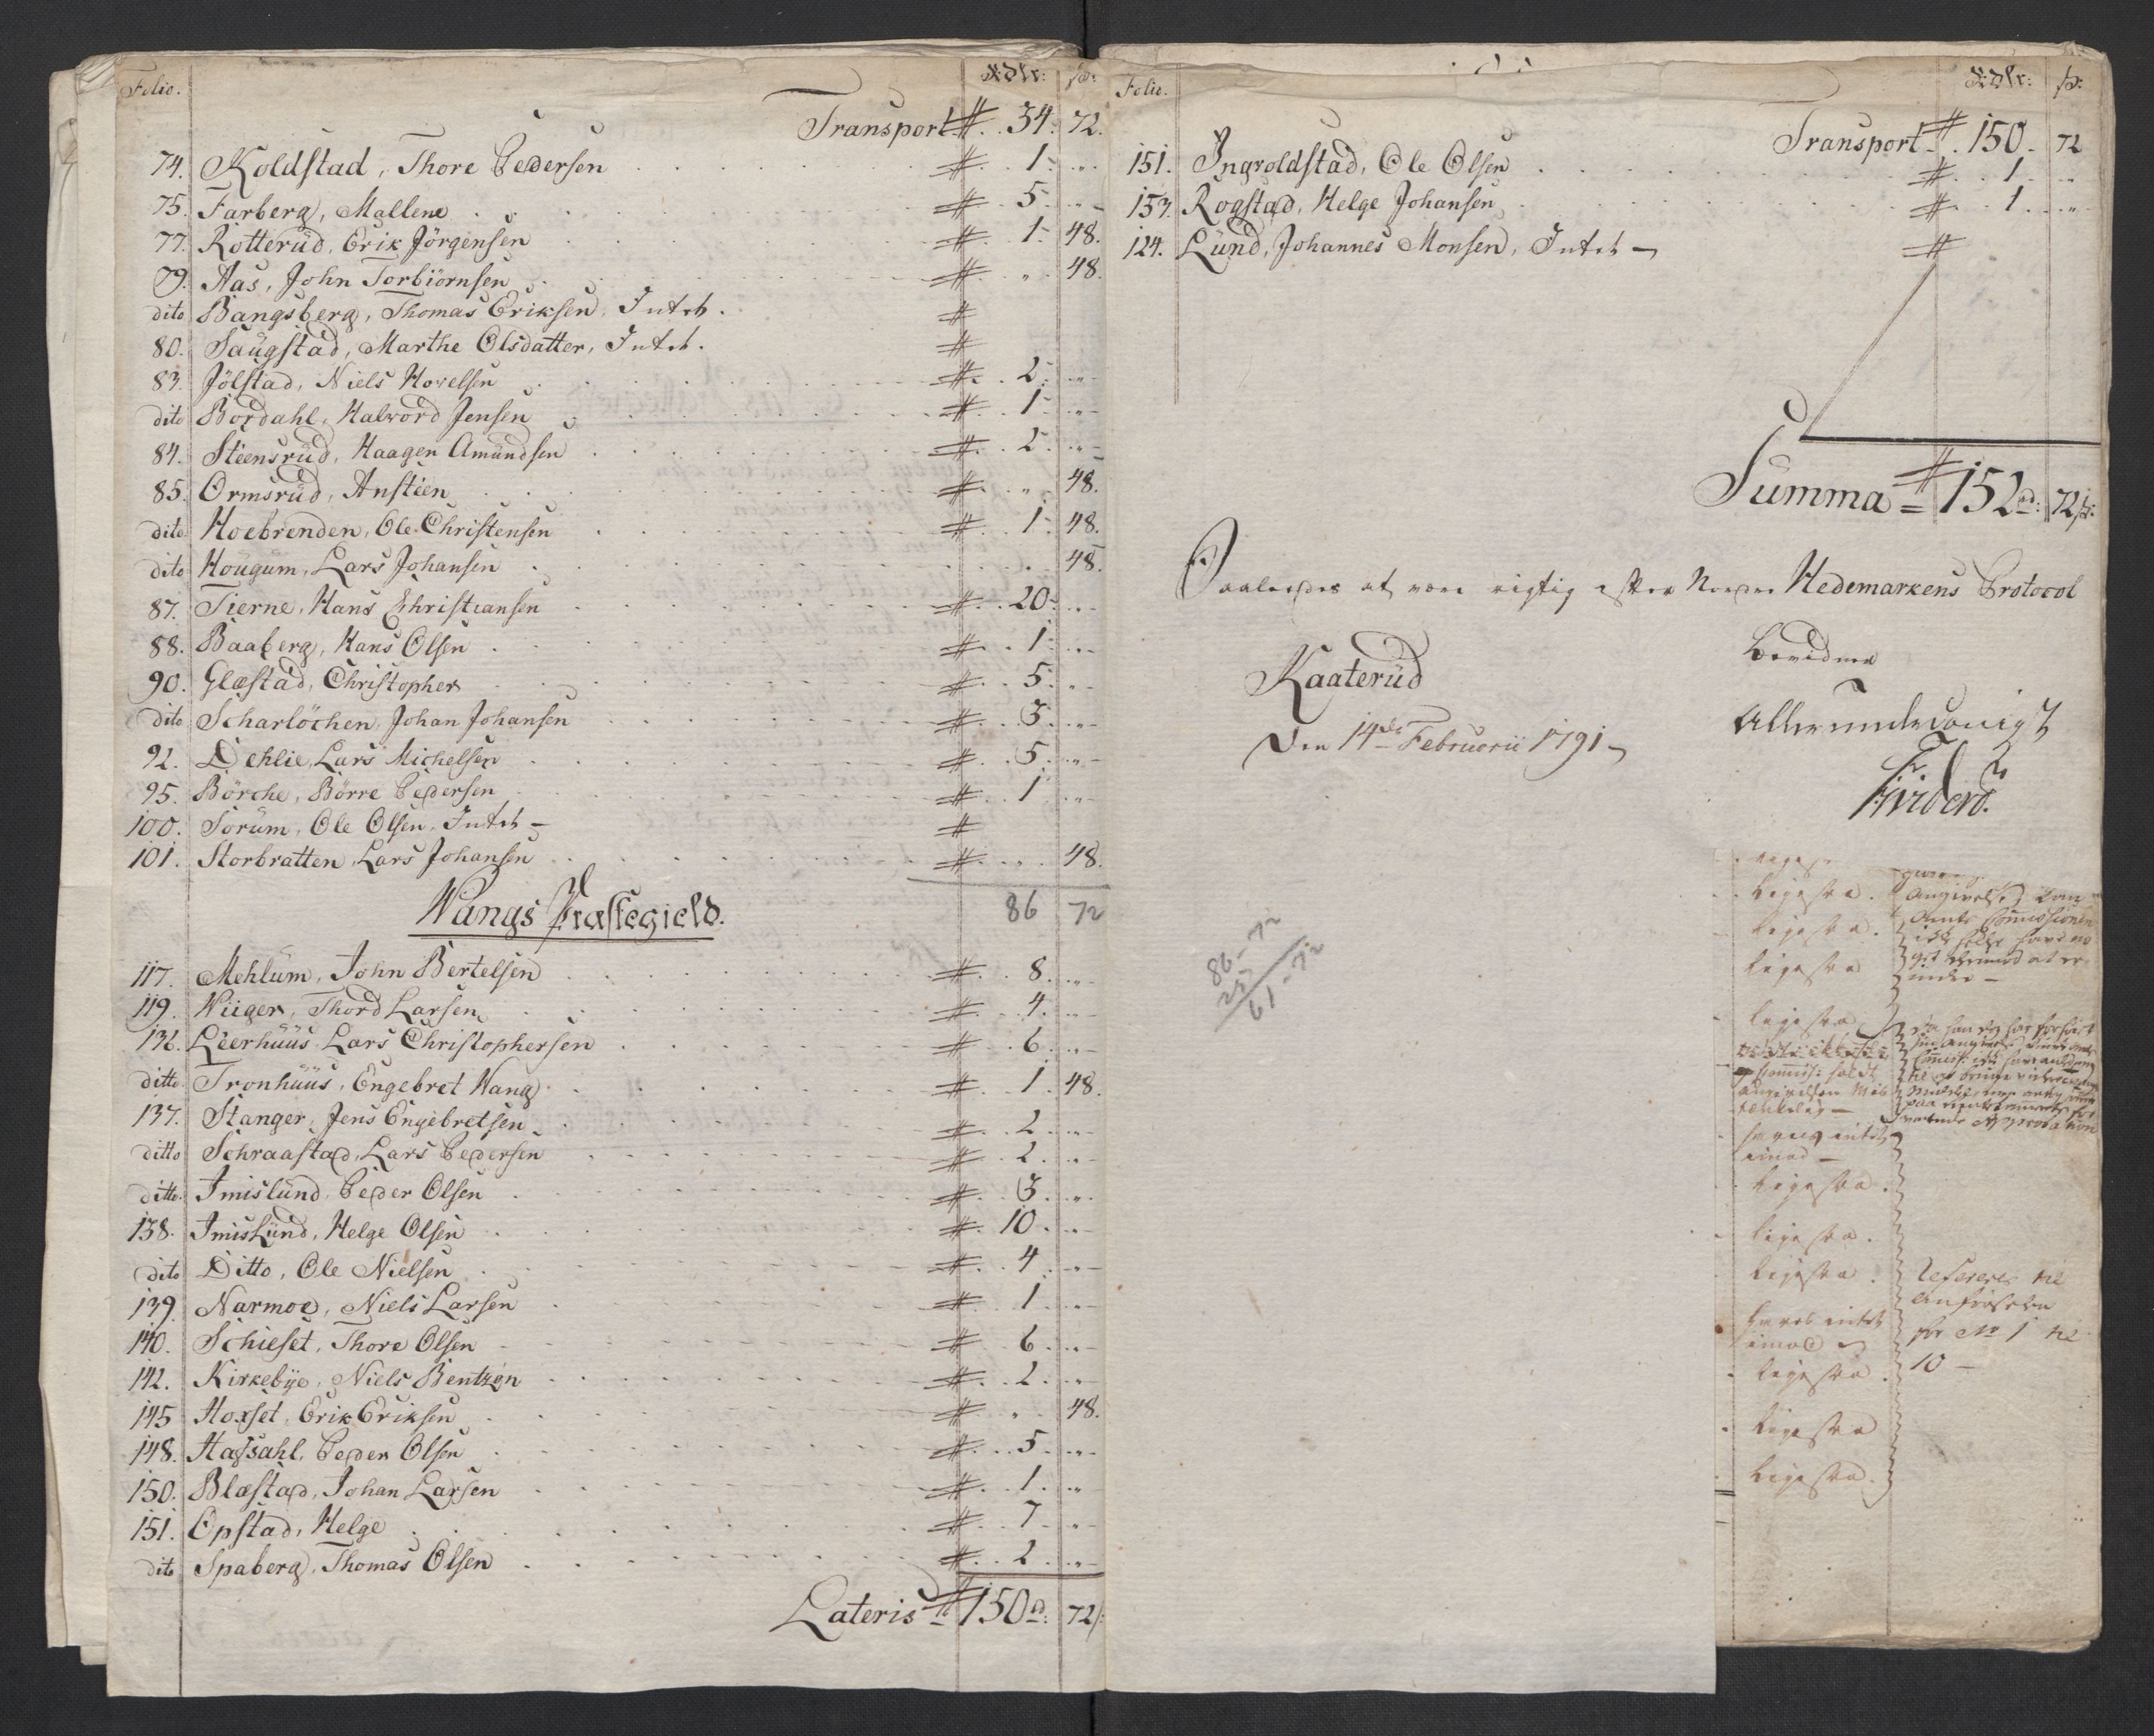 Folio. Rdlr: ß:
Transport # 34. 72.
74. Koldstad, Thore Pedersen # 1. "
75. Farberg, Mallene # 5. "
77. Rotterüd, Erik Jörgensen # 1. 48.
79. Aas, John Torbiörnsen # " 48.
dito Bangsberg, Thomas Eriksen, Intet. #
80. Saugstad, Marthe Olsdatter, Intet. #
83. Jölstad, Niels Hovelsen # 2. "
dito Bordahl, Halvord Jensen # 1. "
84. Steensrüd, Haagen Amündsen # 2. "
85. Ormsrüd, Anstien # " 48.
dito Hoebrenden, Ole Christensen # 1. 48.
dito Hougum, Lars Johansen 48.
87. Tierne, Hans Christiansen # 20. "
88. Baaberg, Hans Olsen # 1. "
90. Glæstad, Christopher # 5. "
dito Scharlöchen, Johan Johansen # 3. "
92. Dehlie, Lars Michelsen # 5. "
95. Börche, Börre Pedersen # 1. "
100. Sorüm, Ole Olsen, Intet #
101. Storbratten, Lars Johansen # " 48.
Wangs Præstegield. 86 72
117. Mehlüm, John Bertelsen # 8. "
119. Wiiger, Thord Larsen # 4. "
136. Leerhüüs Lars Christophersen # 6. "
ditto. Tronhüüs, Engebret Wang # 1. 48.
137. Stanger, Jens Engebretsen # 2. "
ditto Schraastad, Lars Pedersen # 2. "
ditto. Imislünd, Peder Olsen # 3. "
138. Imislünd, Helge Olsen # 10. "
dito Ditto, Ole Nielsen # 4. "
139. Narmoe, Niels Larsen # 1. "
140. Schieset, Thore Olsen # 6. "
142. Kirkebye, Niels Bentzen # 2. "
145 Hoxset, Erik Eriksen # " 48.
148. Hafsahl, Peder Olsen # 5. "
150. Blæstad, Johan Larsen # 1. "
151. Opstad, Helge # 7. "
dito Spaberg, Thomas Olsen # 2. "
Lateris # 150 rd: 72 ß:
Folio. Rdlr: ß:
Transport # 150. 72
151. Ingvoldstad, Ole Olsen # 1. "
153. Rogstad, Helge Johansen # 1. "
124. Lünd, Johannes Monsen, Intet #
Summa = # 152 rd: 72 ß:
Saaledes at være rigtig efter Nordre Hedemarkens Protocol
Bevidner
Kaaterüd
Den 14de Februarii 1791
Allerunderdanigst
86-72
25
61-72
ligesaa.
ligesaa.
ligesaa
ligesaa
haves intet
imod
ligesaa.
ligesaa.
ligesaa.
haves intet
imod
ligesaa.
ligesaa
ligesaa.
Angivelse
Amts Commissionen
Refereres til
Anförselen
for No 1 til
10